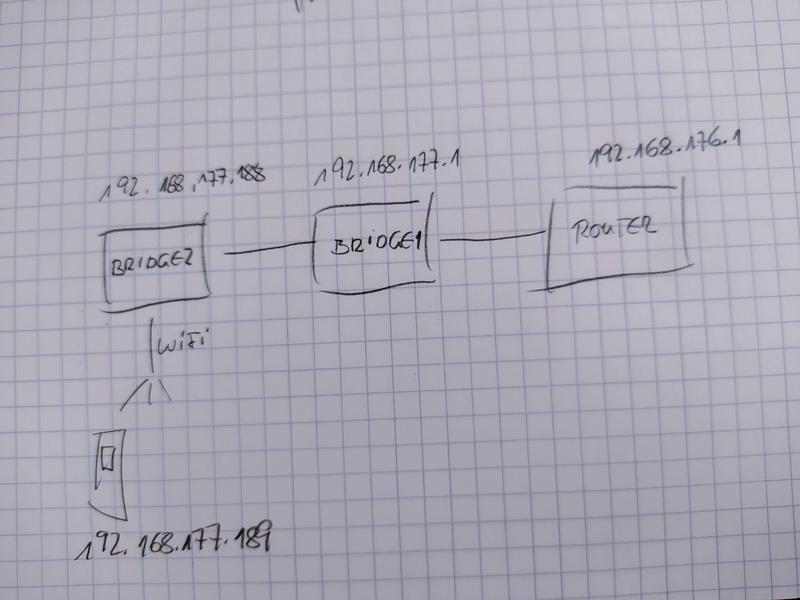 192.168.177.188
192.168.177.1
192.168.176.1
BRIDGE2
BRIDGE1
ROUTER
WiFi
192.168.177.189